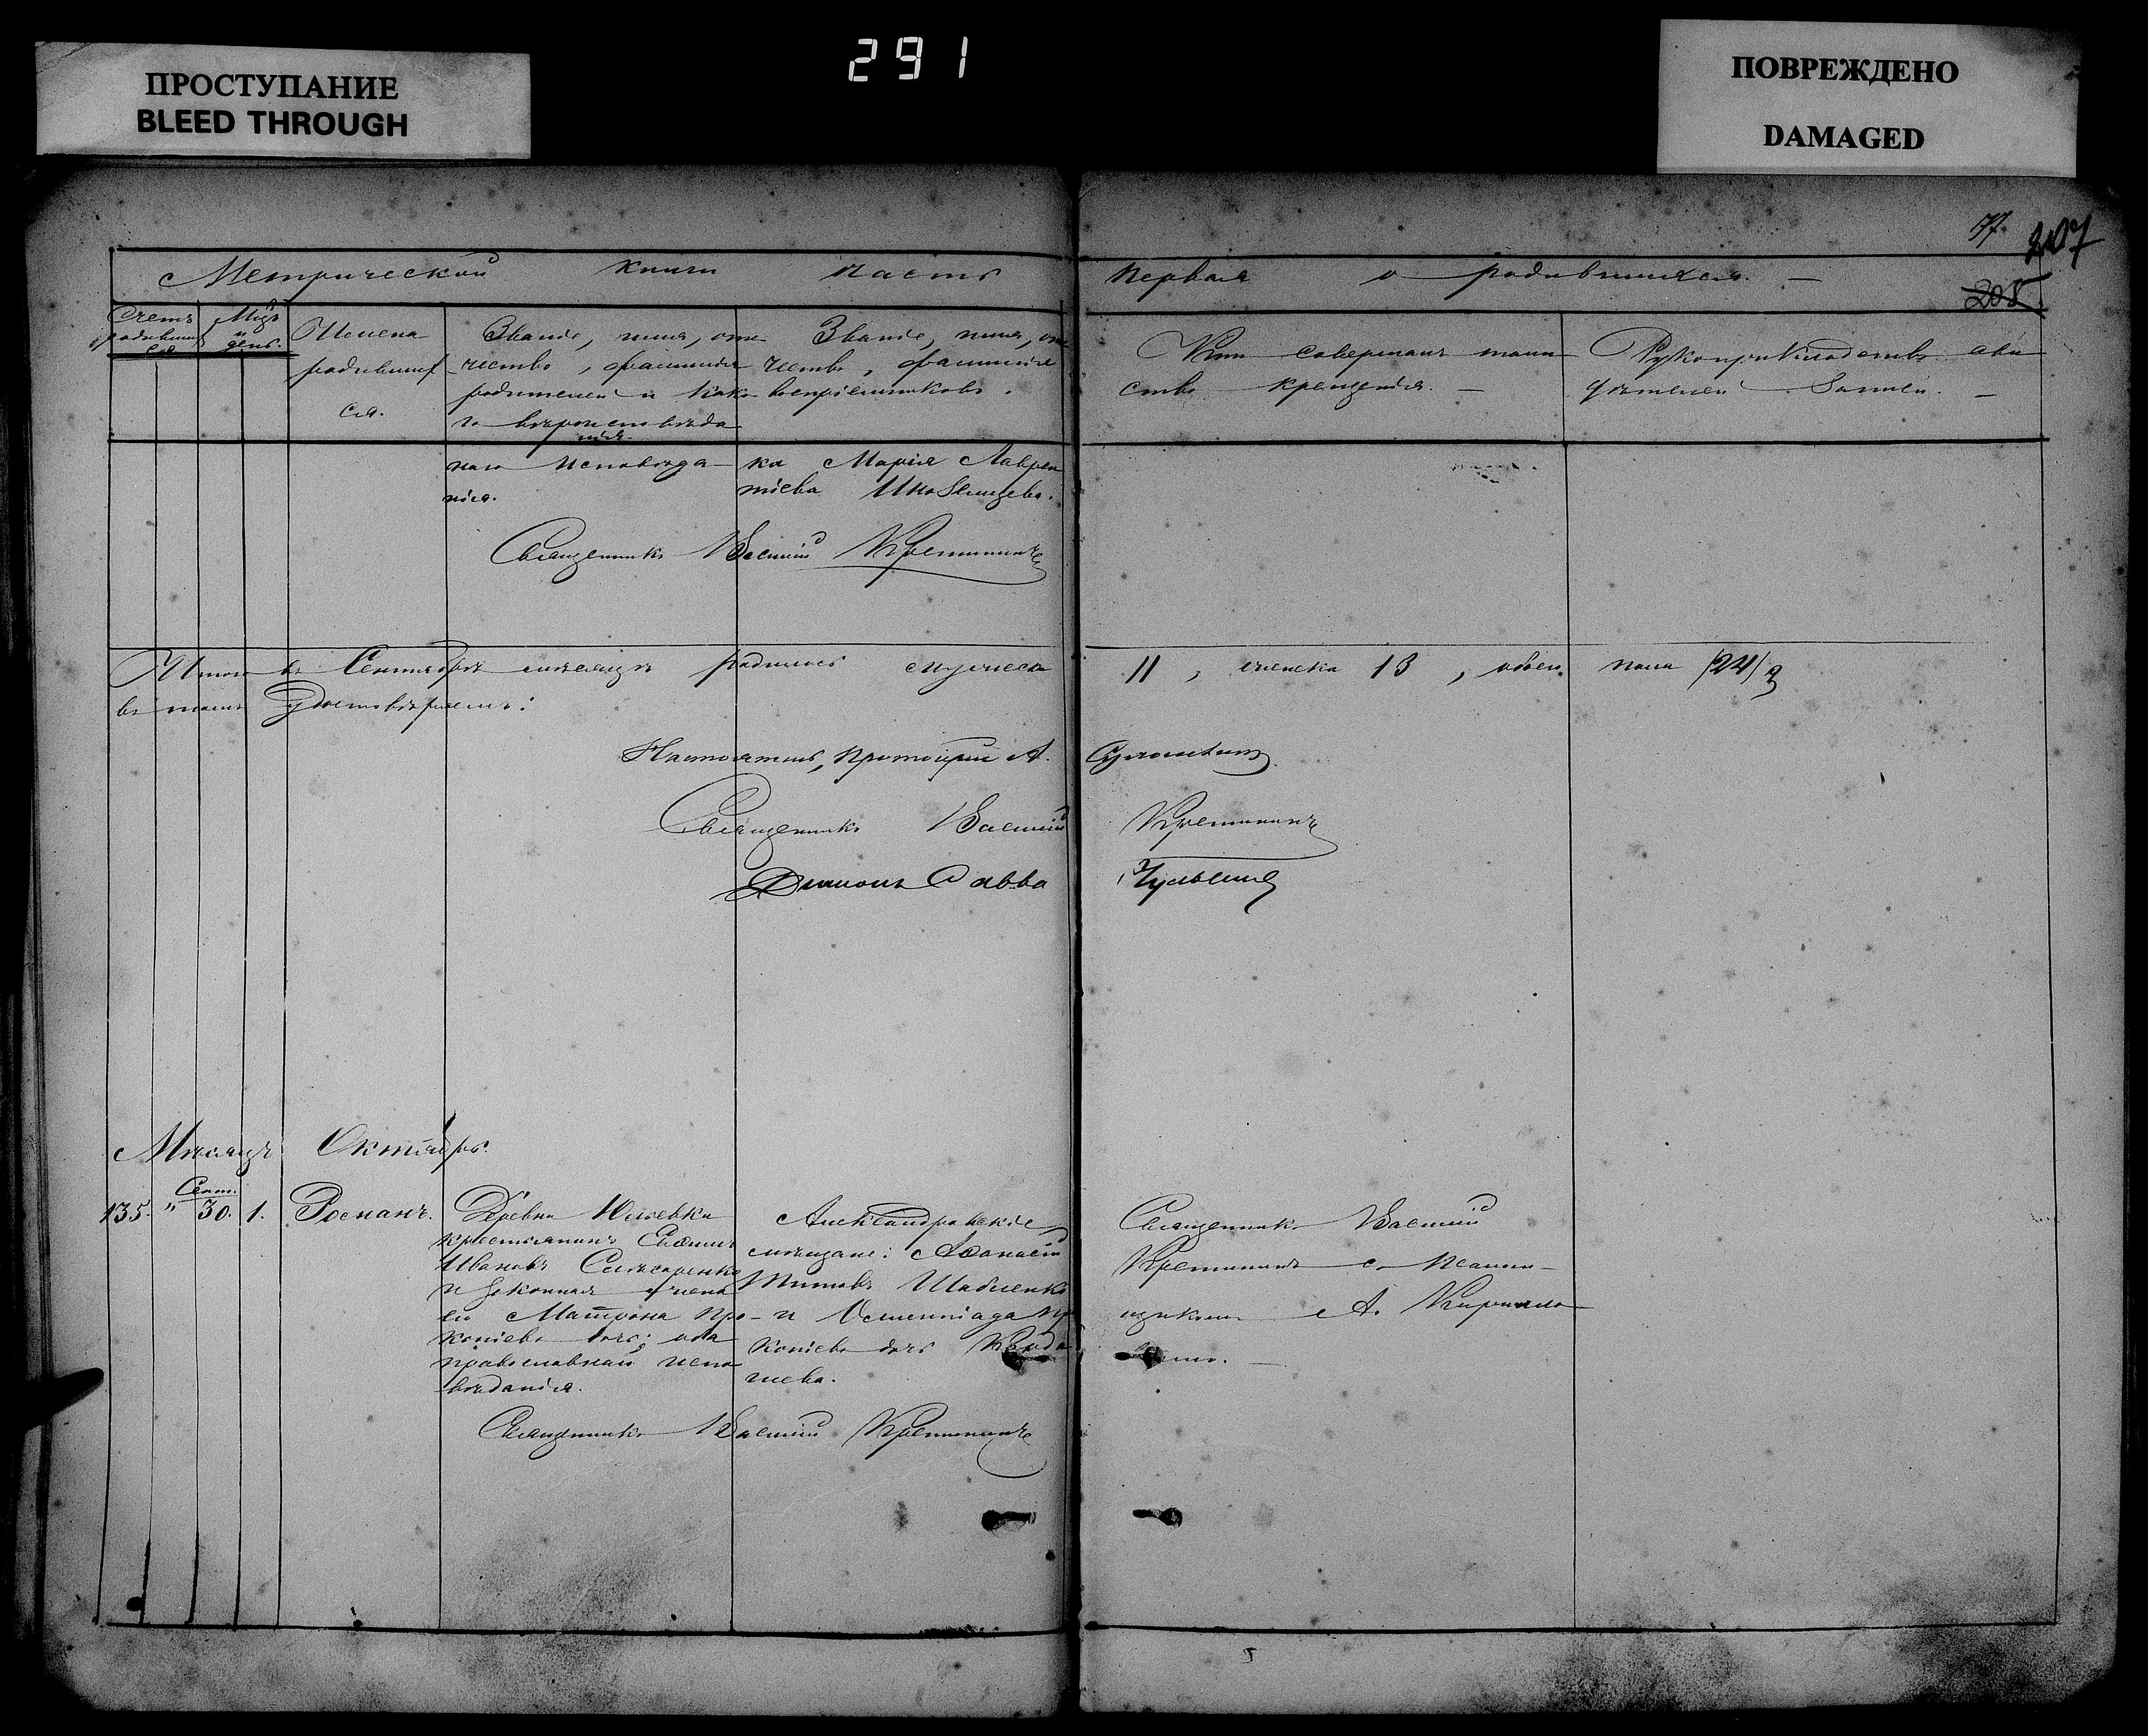 ПРОСТУПАНИЕ
BLEED THROUGH
291
ПОВРЕЖДЕНО
DAMAGED
207
208
Метрической книги часть первая о родившихся. —
Счетъ родивших
ся
Мцъ
и
день.
Имена
родивших
ся.
Званіе, имя, оте
чество, фамилія
родителей и како
го вѣроисповѣда
нія.
Званіе, имя, от
чество, фамилія
воспріемниковъ.
Кто совершалъ таин
ство крещенія. —
Рукоприкладство сви
дѣтелей записи. —
наго исповѣда
нія.
ка Марія Лаврен
тіева
Священникъ Василій
Итого въ Сентябрѣ мѣсяцѣ родилось мужеска 11, женска 13, обоего пола /24/
въ томъ удостовѣряемъ:
Настоятель, протоіерей А.
Священникъ Василій
Діаконъ Савва
Мѣсяцъ Октябрь.
135. " Сент. 30. 1. Романъ.
Деревни Юльевки
крестьянинъ Евфимъ
Ивановъ Слѣсаренко
и законная жена
его Матрона Про
копіева дочь; оба
православнаго испо
вѣданія.
Александровскіе
мѣщане: Афанасій
Титовъ Шабленко
и Олимпіада Пр
копіева дочь
чева.
Священникъ Василій
съ псалом
щикомъ А. Кирилло
вымъ. —
Священникъ Василій